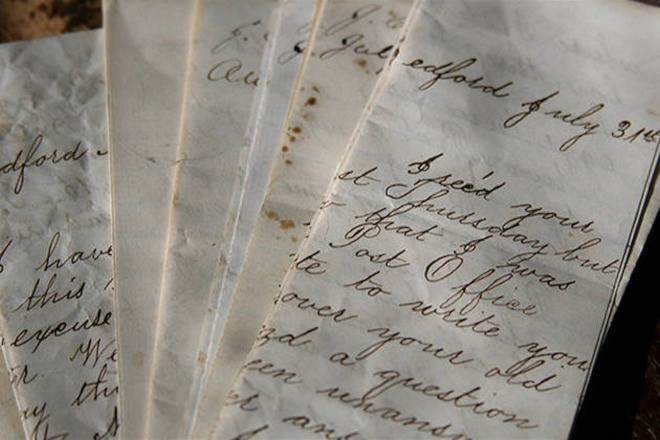 dford
I have
this
excuse
r. We
ay thi
J.
Au
J.
Jul
edford July 31st
I rec'd your
st Thursday but
that I was
Post Office
te to write you
over your old
nd a question
een unansw
er and